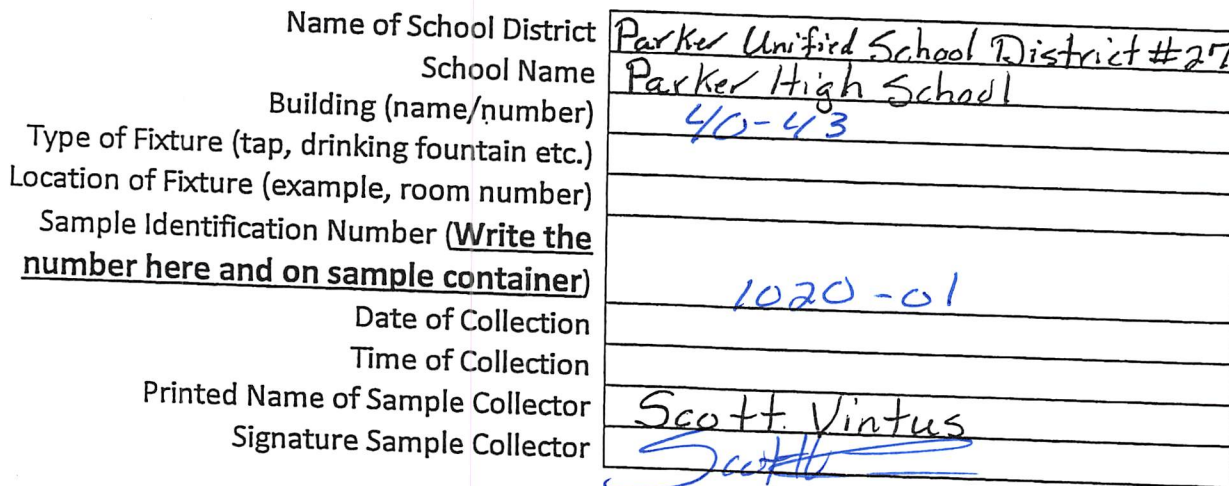 Name of School District Parker Unified School District #27
School Name Parker High School
Building (name/number) 40-43
Type of Fixture (tap, drinking fountain etc.)
Location of Fixture (example, room number)
Sample Identification Number (Write the
number here and on sample container) 1020-01
Date of Collection
Time of Collection
Printed Name of Sample Collector Scott Vintus
Signature Sample Collector